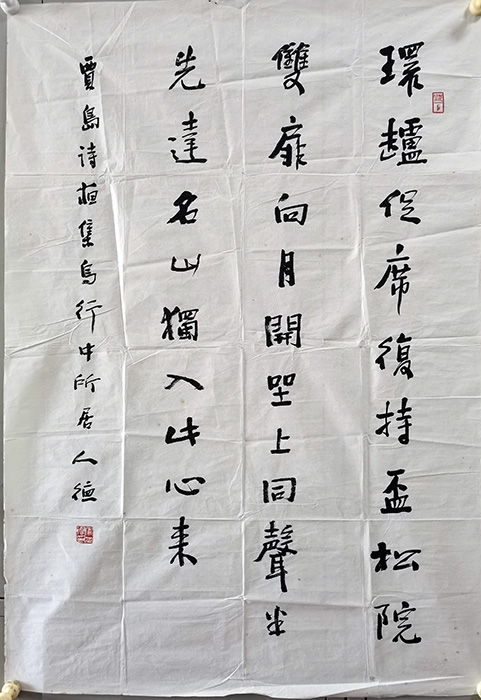 環爐促席復持盃松院
雙扉向月開坐上同聲半
先達名山獨入此心来
賈島诗集烏行中所居 人德